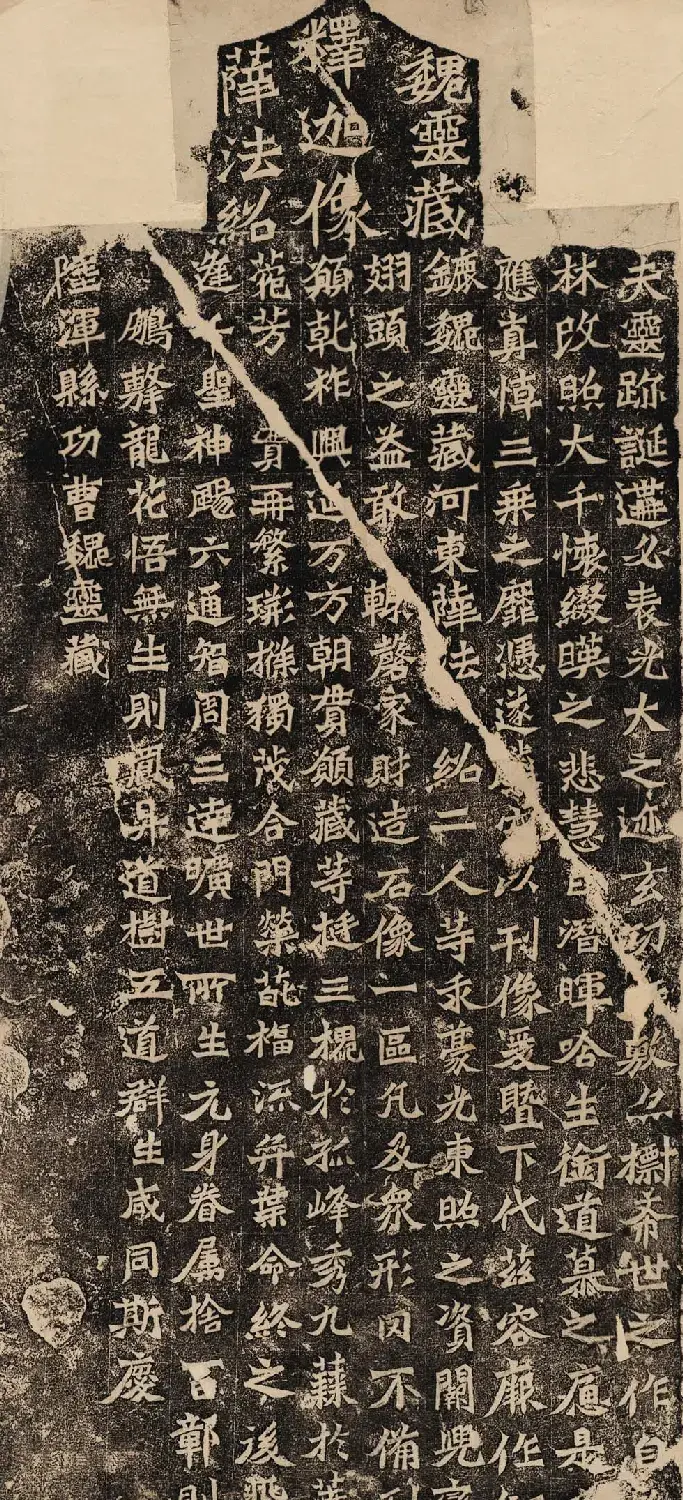 魏靈藏
釋迦像
薛法紹
夫靈跡誕遘必表光大之迹玄功敷亦摽希世之作自
林改照大千懷綴暎之悲慧日潛暉唅生銜道慕之痛是
應真悼三乘之靡憑遂以刊像爰暨下代茲容厥作
鉅鏕魏靈藏河東薛法紹二人等求豪光東照之資闕兜率
翅頭之益敢輒磬家財造石像一區凡及眾形罔不備列
願乾祚興延万方朝貫願藏等挺三槐於孤峰秀九蕀於華
菀芳實再繁璘㩁獨茂合門榮葩福流弈葉命終之後飛
逢千聖神颺六通智周三達曠世所生元身眷属捨百鄣則
鵬擊龍花悟無生則鳳昇道樹五道群生咸同斯慶
陸渾縣功曹魏靈藏